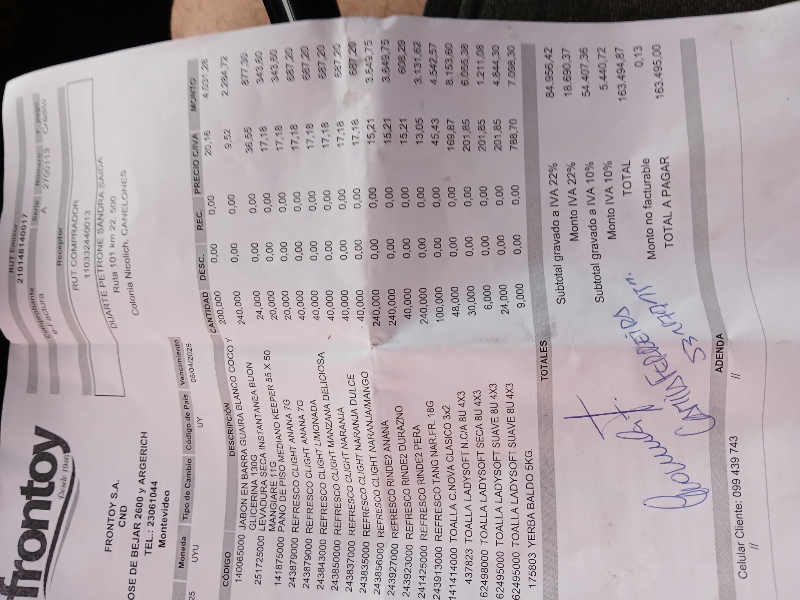 frontoy
Desde 1940
FRONTOY S.A.
CND
JOSE DE BEJAR 2600 y ARGERICH
TEL.: 23061044
Montevideo
RUT Emisor
210148140017
Comprobante Serie Número F. pago
e-Factura A 2700113 Crédito
Receptor
RUT COMPRADOR
110332440013
DUARTE PETRONE SANDRA SAIDA
Ruta 101 km 22. 500
Colonia Nicolich, CANELONES
Moneda Tipo de Cambio Código de País Vencimiento
UYU UY 05/04/2025
CÓDIGO DESCRIPCIÓN CANTIDAD DESC. REC. PRECIO C/IVA MONTO
140065000 JABON EN BARRA GUAIRA BLANCO COCO Y 200,000 0,00 0,00 20,16 4.031,28
GLICERINA 130G
251725000 LEVADURA SECA INSTANTANEA BIJON 240,000 0,00 0,00 9,52 2.284,72
MANGIARE 11G
141875000 PANO DE PISO MEDIANO KEEPER 55 X 50 24,000 0,00 0,00 36,55 877,30
243879000 REFRESCO CLIGHT ANANA 7G 20,000 0,00 0,00 17,18 343,60
243879000 REFRESCO CLIGHT ANANA 7G 20,000 0,00 0,00 17,18 343,60
243843000 REFRESCO CLIGHT LIMONADA 40,000 0,00 0,00 17,18 687,20
243850000 REFRESCO CLIGHT MANZANA DELICIOSA 40,000 0,00 0,00 17,18 687,20
243837000 REFRESCO CLIGHT NARANJA 40,000 0,00 0,00 17,18 687,20
243835000 REFRESCO CLIGHT NARANJA DULCE 40,000 0,00 0,00 17,18 687,20
243856000 REFRESCO CLIGHT NARANJA/MANGO 40,000 0,00 0,00 17,18 687,20
243927000 REFRESCO RINDE2 ANANA 240,000 0,00 0,00 15,21 3.649,75
243923000 REFRESCO RINDE2 DURAZNO 240,000 0,00 0,00 15,21 3.649,75
241425000 REFRESCO RINDE2 PERA 40,000 0,00 0,00 15,21 608,29
243913000 REFRESCO TANG NAR.FR. 18G 240,000 0,00 0,00 13,05 3.131,62
141414000 TOALLA C.NOVA CLASICO 3x2 100,000 0,00 0,00 45,43 4.542,57
437823 TOALLA LADYSOFT N.CA 8U 4X3 48,000 0,00 0,00 169,87 8.153,60
62498000 TOALLA LADYSOFT SECA 8U 4X3 30,000 0,00 0,00 201,85 6.055,38
62495000 TOALLA LADYSOFT SUAVE 8U 4X3 6,000 0,00 0,00 201,85 1.211,08
62495000 TOALLA LADYSOFT SUAVE 8U 4X3 24,000 0,00 0,00 201,85 4.844,30
175803 YERBA BALDO 5KG. 9,000 0,00 0,00 788,70 7.098,30
TOTALES
Subtotal gravado a IVA 22% 84.956,42
Monto IVA 22% 18.690,37
Subtotal gravado a IVA 10% 54.407,36
Monto IVA 10% 5.440,72
TOTAL 163.494,87
Monto no facturable 0,13
TOTAL A PAGAR 163.495,00
ADENDA
//
Celular Cliente: 099 439 743
//